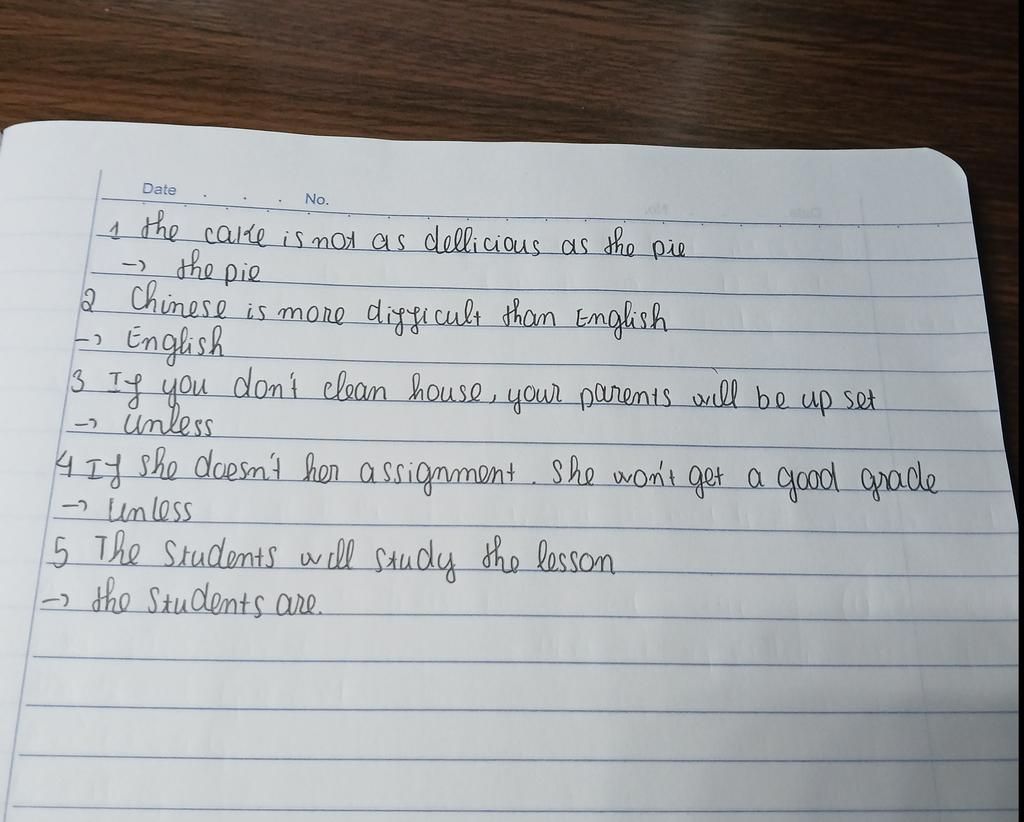 Date . . . No.
1 the cake is not as dellicious as the pie
→ the pie
2 Chinese is more difficult than English
→ English
3 If you don't clean house, your parents will be up set
→ unless
4 If she doesn't her assignment. She won't get a good grade
→ unless
5 The students will study the lesson
→ the students are.